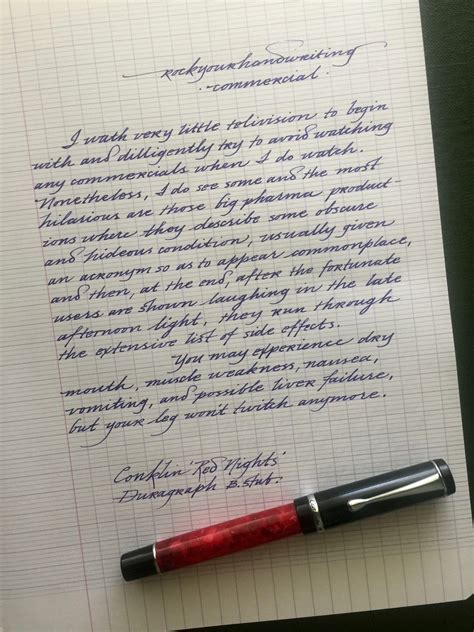 rockyourhandwriting
· commercial ·
I wath very little television to begin
with and dilligently try to avoid watching
any commercials when I do watch.
Nonetheless, I do see some and the most
hilarious are those big pharma product-
ions where they describe some obscure
and hideous condition, usually given
an acronym so as to appear commonplace,
and then, at the end, after the fortunate
users are shown laughing in the late
afternoon light, they run through
the extensive list of side effects.
You may experience dry
mouth, muscle weakness, nausea,
vomiting, and possible liver failure,
but your leg won't twitch anymore.
Conklin 'Red Nights'
Duragraph B. stub.